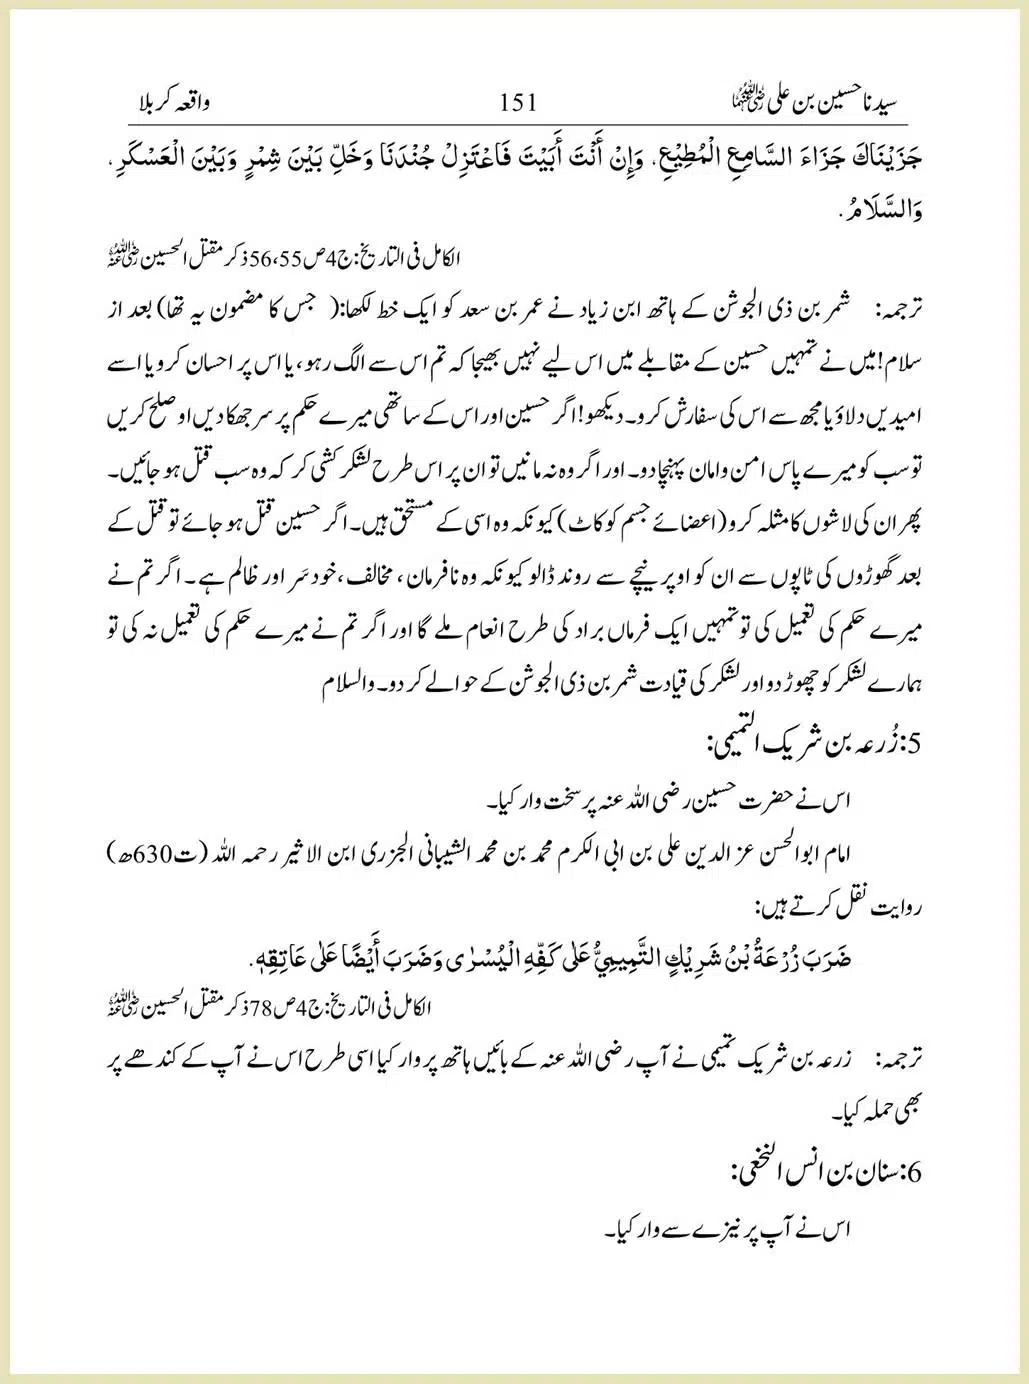 سیدنا حسین بن علی رضی اللہ عنہما 151 واقعہ کربلا
جَزَيْنَاكَ جَزَاءَ السَّامِعِ الْمُطِيْعِ، وَإِنْ أَنْتَ أَبَيْتَ فَاعْتَزِلْ جُنْدَنَا وَخَلِّ بَيْنَ شِمْرٍ وَبَيْنَ الْعَسْكَرِ،
وَالسَّلَامُ.
الکامل فی التاریخ: ج4ص56،55 ذکر مقتل الحسین رضی اللہ عنہ
ترجمہ: شمر بن ذی الجوشن کے ہاتھ ابن زیاد نے عمر بن سعد کو ایک خط لکھا: (جس کا مضمون یہ تھا) بعد از
سلام! میں نے تمہیں حسین کے مقابلے میں اس لیے نہیں بھیجا کہ تم اس سے الگ رہو، یا اس پر احسان کرو یا اسے
امیدیں دلاؤ یا مجھ سے اس کی سفارش کرو۔ دیکھو! اگر حسین اور اس کے ساتھی میرے حکم پر سر جھکا دیں او صلح کریں
تو سب کو میرے پاس امن و امان پہنچا دو۔ اور اگر وہ نہ مانیں تو ان پر اس طرح لشکر کشی کر کہ وہ سب قتل ہو جائیں۔
پھر ان کی لاشوں کا مثلہ کرو (اعضائے جسم کو کاٹ) کیونکہ وہ اسی کے مستحق ہیں۔ اگر حسین قتل ہو جائے تو قتل کے
بعد گھوڑوں کی ٹاپوں سے ان کو اوپر نیچے سے روند ڈالو کیونکہ وہ نافرمان، مخالف، خود سَر اور ظالم ہے۔ اگر تم نے
میرے حکم کی تعمیل کی تو تمہیں ایک فرماں براد کی طرح انعام ملے گا اور اگر تم نے میرے حکم کی تعمیل نہ کی تو
ہمارے لشکر کو چھوڑ دو اور لشکر کی قیادت شمر بن ذی الجوشن کے حوالے کر دو۔ والسلام
5: زُرعہ بن شریک التمیمی:
اس نے حضرت حسین رضی اللہ عنہ پر سخت وار کیا۔
امام ابوالحسن عز الدین علی بن ابی الکرم محمد بن محمد الشیبانی الجزری ابن الاثیر رحمہ اللہ (ت630ھ)
روایت نقل کرتے ہیں:
ضَرَبَ زُرْعَةُ بْنُ شَرِيْكٍ التَّمِيمِيُّ عَلٰى كَفِّهِ الْيُسْرٰى وَضَرَبَ أَيْضًا عَلٰى عَاتِقِهٖ.
الکامل فی التاریخ: ج4ص78 ذکر مقتل الحسین رضی اللہ عنہ
ترجمہ: زرعہ بن شریک تمیمی نے آپ رضی اللہ عنہ کے بائیں ہاتھ پر وار کیا اسی طرح اس نے آپ کے کندھے پر
بھی حملہ کیا۔
6: سنان بن انس النخعی:
اس نے آپ پر نیزے سے وار کیا۔